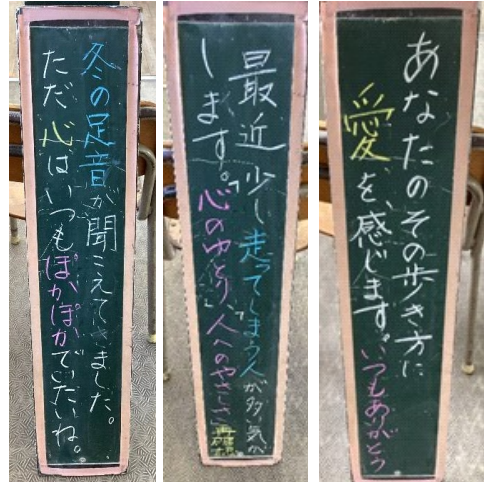 冬の足音が聞こえてきました。
ただ心はいつもぽかぽかでいたいね。
最近少し走ってしまう人が多い気が
します。「心のゆとり」「人へのやさしさ」再確認
あなたのその歩き方に
愛を、感じます。いつもありがとう